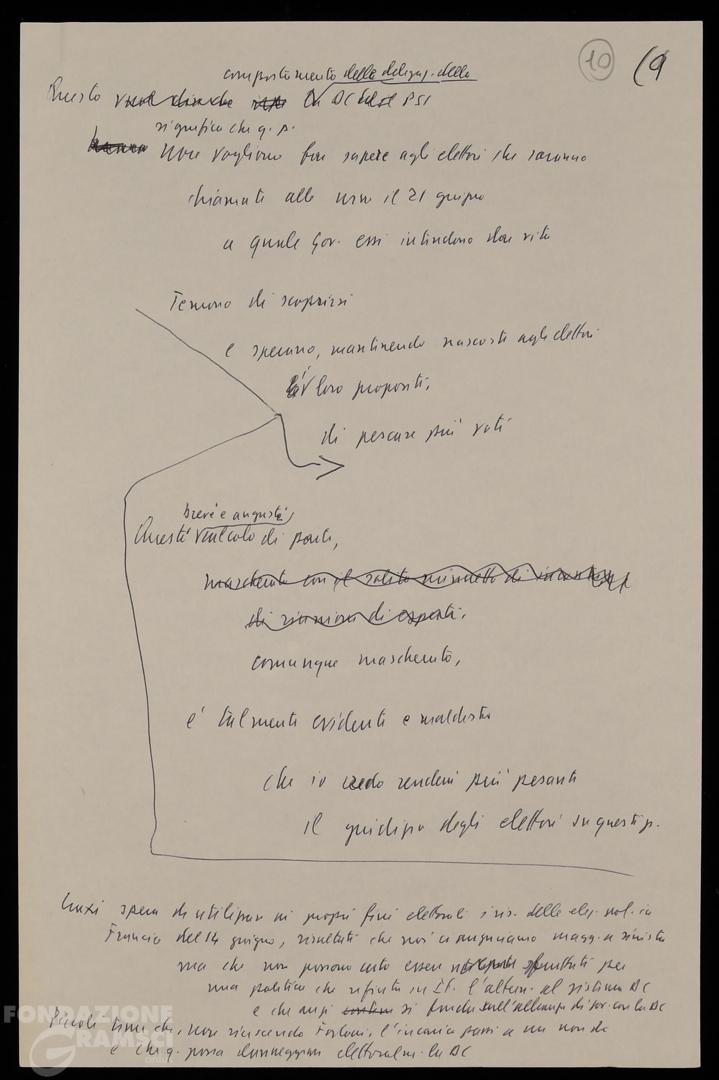 10 (9
comportamento della delegaz. della
Questo vuol dire che la DC e del PSI
significa che q. p.
non vogliono far sapere agli elettori che saranno
chiamati alle urne il 21 giugno
a quale gov. essi intendono dar vita
Temono di scoprirsi
e sperano, mantenendo nascosti agli elettori
i loro propositi,
di pescare più voti
Breve e angusto,
Questo calcolo di parte,
mascherato con il solito minuetto di
di riunioni di esperti,
comunque mascherato,
è talmente evidente e maldestro
che io credo renderà più pesante
il giudizio degli elettori su questi p.
Craxi spera di utilizzare ai propri fini elettorali i ris. delle elez. pol. in
Francia del 14 giugno, risultati che noi ci auguriamo magg. a sinistra
ma che non possono certo essere sfruttati per
una politica che rifiuta in It. l'altern. al sistema DC
e che anzi si fonda sull'alleanza di gov. con la DC
Piccoli teme che, non riuscendo Forlani, l'incarico passi a un non dc
e che q. possa danneggiare elettoralm. la DC
FONDAZIONE
GRAMSCI